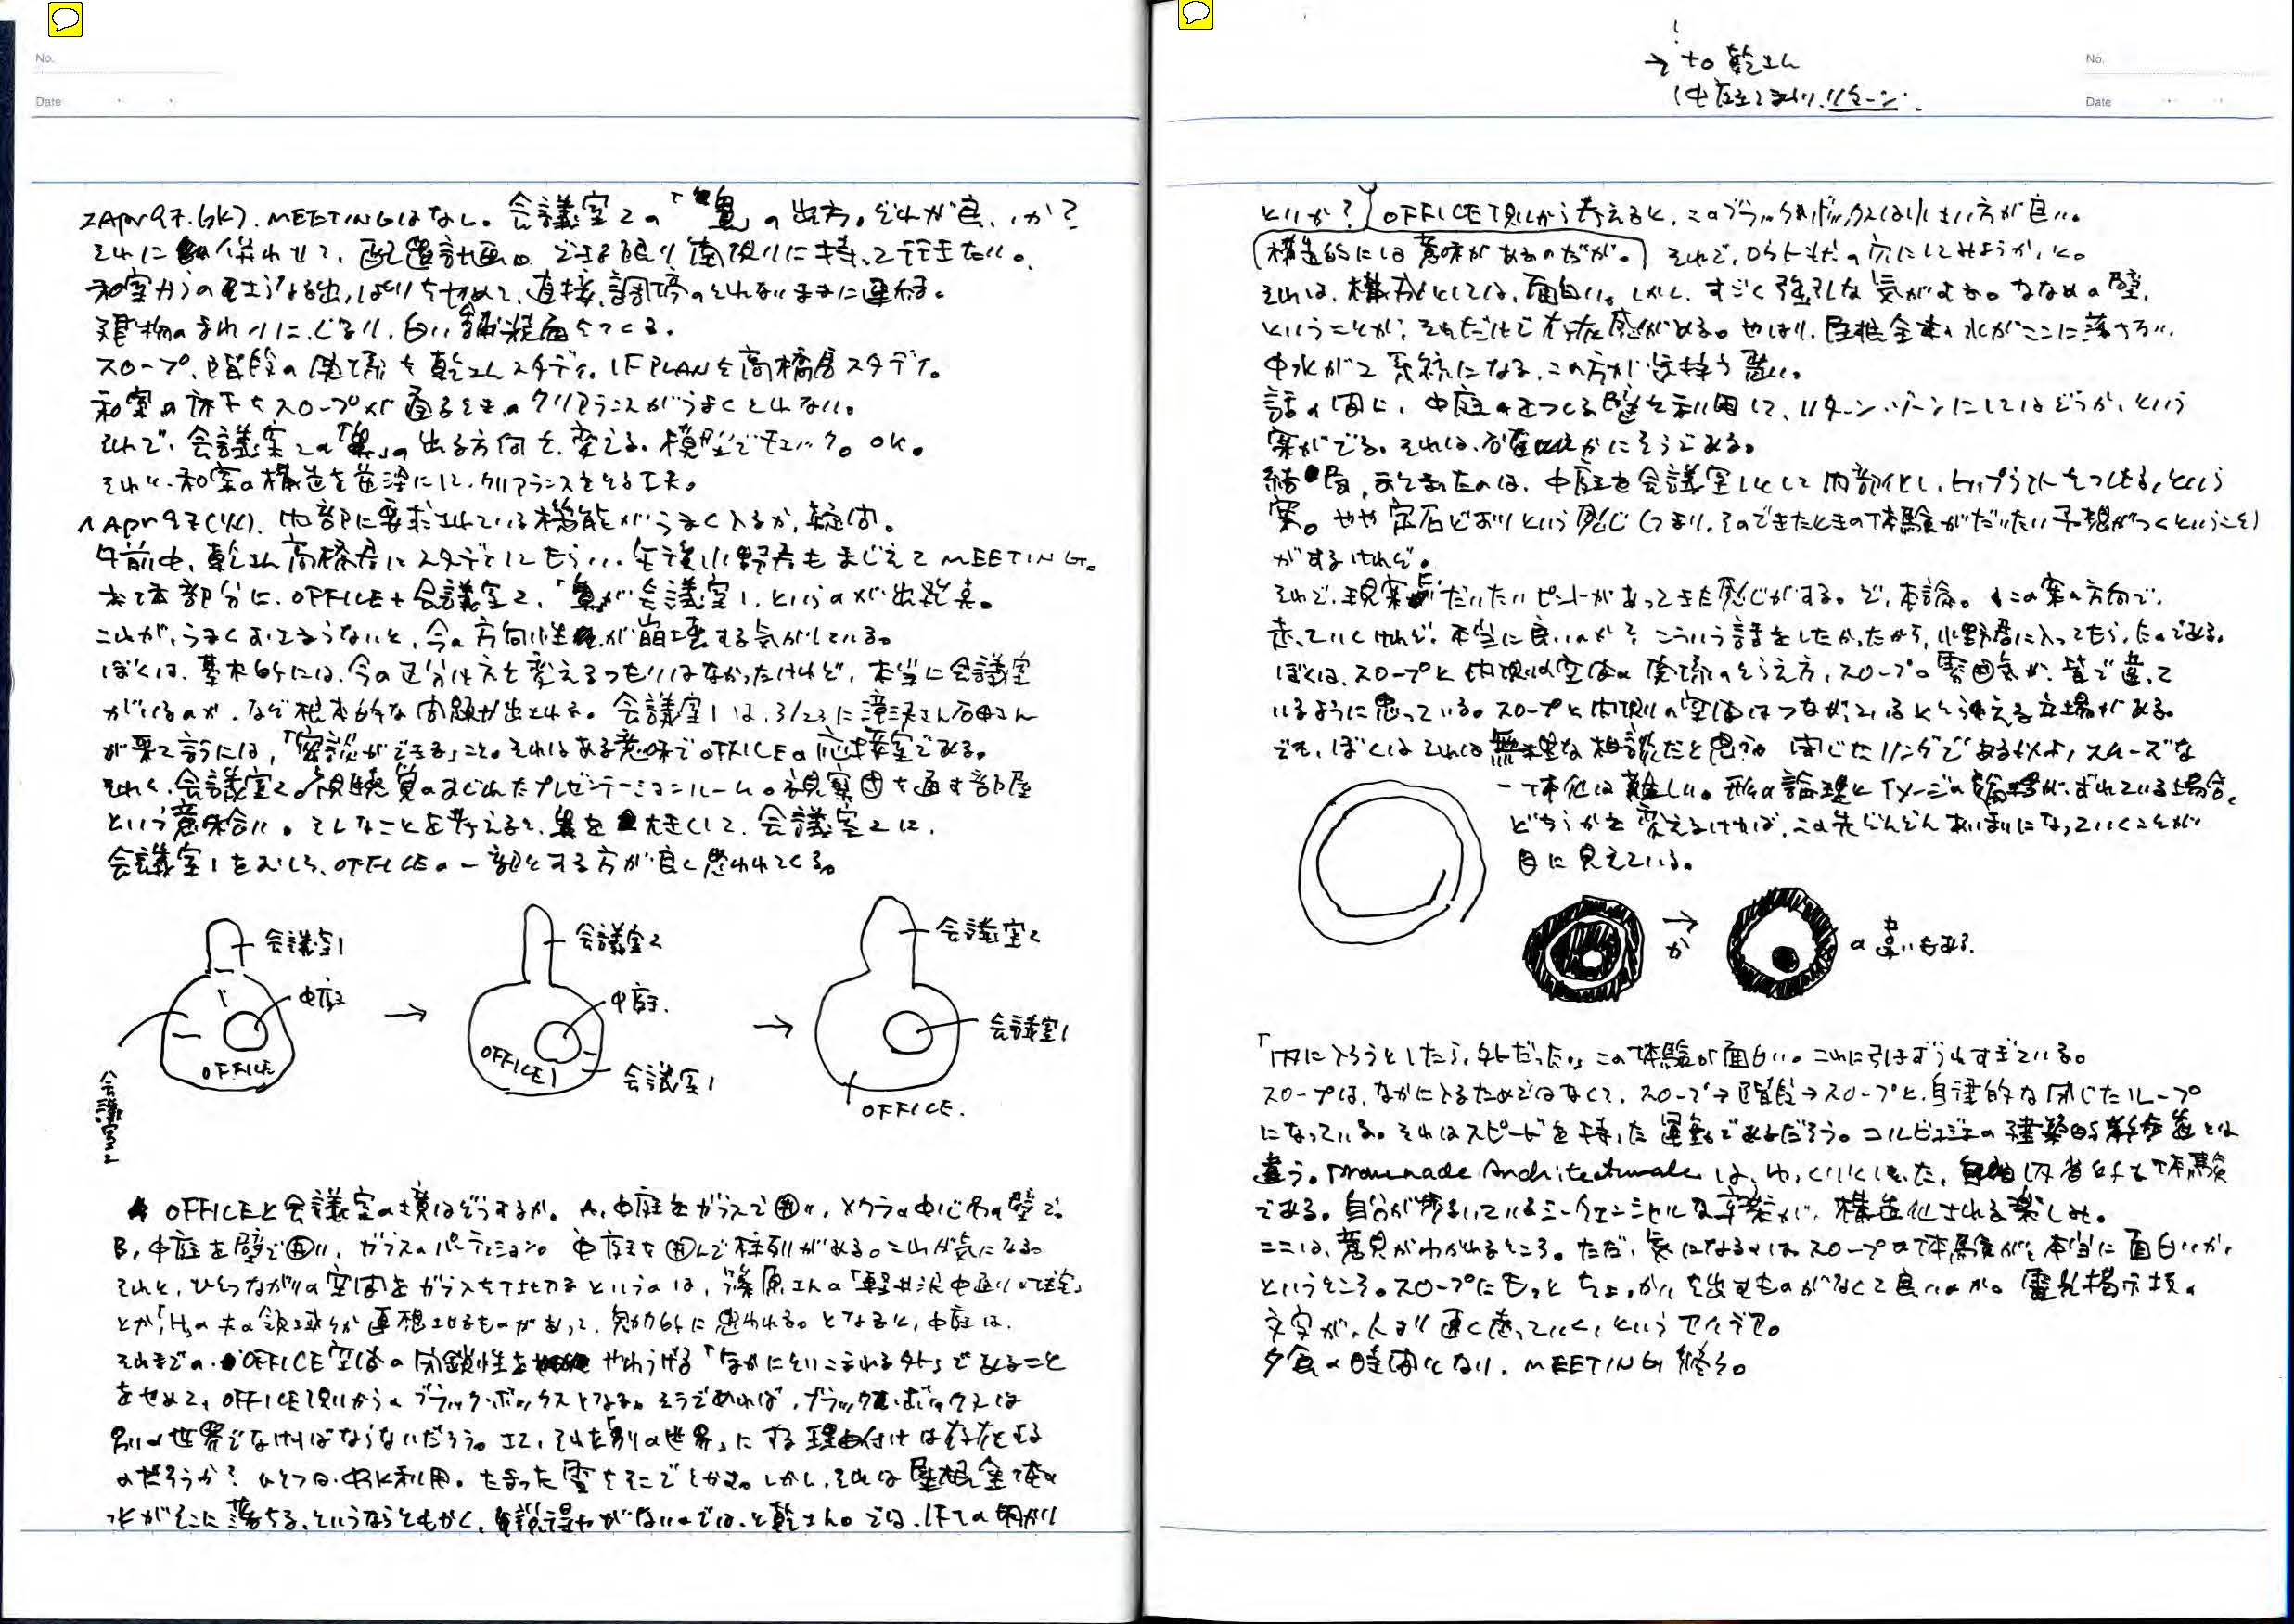 No.
Date
2 Apr 97. (水). MEETINGはなし。会議室2の「鼻」の出方。どれが良いか?
それに併わせて、配置計画。できる限り南側りに持って行きたい。
建物のまわりに、ぐるり、白い舗装面をつくる。
スロープ、階段の関係を乾さんスタディ。1F PLANを高橋君スタディ。
和室の床下をスロープが通るときのクリアランスがうまくとれない。
それで、会議室2の「鼻」の出る方向を、変える。模型でチェック。OK。
それと、和室の構造を 、クリアランスをとる工夫。
1 Apr 97 (火). 内部に要求されている機能がうまく入るか、疑問。
午前中、乾さん高橋君にスタディしてもらい、午後小野君もまじえてMEETING。
おでき部分に、OFFICE+会議室2、「鼻」が会議室1、というのが出発点。
これが、うまくおさまらないと、今の方向性が崩壊する気がしている。
ぼくは、基本的には、今の区分け方を変えるつもりはなかったけれど、本当に会議室
がいるのか、など根本的な問題が出される。会議室1は、3/23に滝沢さん石田さん
が来て言うには、「密談ができる」こと。それはある意味でOFFICEの応接室である。
それと、会議室2。視聴覚のまじれたプレゼンテーションルーム。視察団を通す部屋
という意味合い。そんなことを考えると、鼻を大きくして、会議室2に、
会議室1をむしろ、OFFICEの一部とする方が良く思われてくる。
会議室1
中庭
OFFICE
会議室2
→
会議室2
中庭.
OFFICE1
会議室1
→
会議室2
会議室1
OFFICE.
OFFICEと会議室の境はどうするか。A, 中庭をガラスで囲い、メクラの中じわの壁で。
B, 中庭を壁で囲い、ガラスのパーティション。中庭を囲んで様列がある。これが気になる。
それと、ひとつながりの空間をガラスで仕切るというのは、篠原さんの「軽井沢 中通りの住宅」
とか、 連想させるものがあって、魅力的に思われる。となると、中庭は、
それまでのOFFICE空間の閉鎖性をやわらげる「なかにとりこまれる外」であること
をやめて、OFFICE側からのブラック・ボックスとなる。そうであれば、ブラック・ボックスは
別の世界でなければならないだろう。さて、それを「別の世界」にする理由付けは存在する
のだろうか? ひとつは、中水利用。たまった雪をそこでとかす。しかし、それは屋根全体の
水がそこに落ちる、というならともかく、説得力がないのでは、と乾さん。では、1Fでの明かり
!
→ to 乾さん
中庭つまり、リターン.
No.
Date
とりか? OFFICE側から考えると、このブラック・ボックスは小さい方が良い。
(構造的には意味があるのだが。) それで、ロート状の穴にしてみようか、と。
それは、構成としては、面白い。しかし、すごく強引な気がする。ななめの壁、
ということが、それだけで存在感がある。やはり、屋根全体の水がここに落ちない。
中水が2系統になる、この方が気持ち悪い。
話の間に、中庭のまつわる壁を利用して、リターン・ゾーンにしてはどうか、という
案がでる。それは、確かにそうである。
結局、おさまったのは、中庭を会議室1として内部化し、トップライトをつける、という
案。やや定石どおりという感じ(つまり、そのできたときの体験がだいたい予想がつくということ)
がするけれど。
それで、現案でだいたいピントがあってきた感じがする。で、本論。この案の方向で、
走っていくけれど、本当に良いのか? こういう話をしたかったから、小野君に入ってもらったのである。
ぼくは、スロープと内側の空間の関係のとらえ方、スロープの雰囲気が、皆で違って
いるように思っている。スロープと内側の空間はつながっているととらえる立場がある。
でも、ぼくはそれは無理な相談だと思う。閉じたリングである以上、スムーズな
一体化は難しい。形の論理とイメージの論理がずれている場合、
どちらかを変えなければ、この先どんどんあいまいになっていくことが
目に見えている。
→
か
の違いもある.
「内に入ろうとしたら、外だった。」この体験が面白い。これに引きずられすぎている。
スロープは、なかに入るためではなくて、スロープ→階段→スロープと、自律的な閉じたループ
になっている。それはスピードを持った運動であるだろう。コルビュジエの建築的散歩道とは
違う。Promenade Architecturale は、ゆっくりとした、内省をともなう体験
である。自分が歩いているシークエンシャルな事実が、構造化される楽しみ。
ここは、意見がわかれるところ。ただ、気になるのは、スロープの体験が、本当に面白いか、
というところ。スロープにもっと ちょっかいを出すものがなくて良いのか。電光掲示板の
文字が、人より速く走っていく、というアイデア。
夕食の時間になり、MEETING 終る。